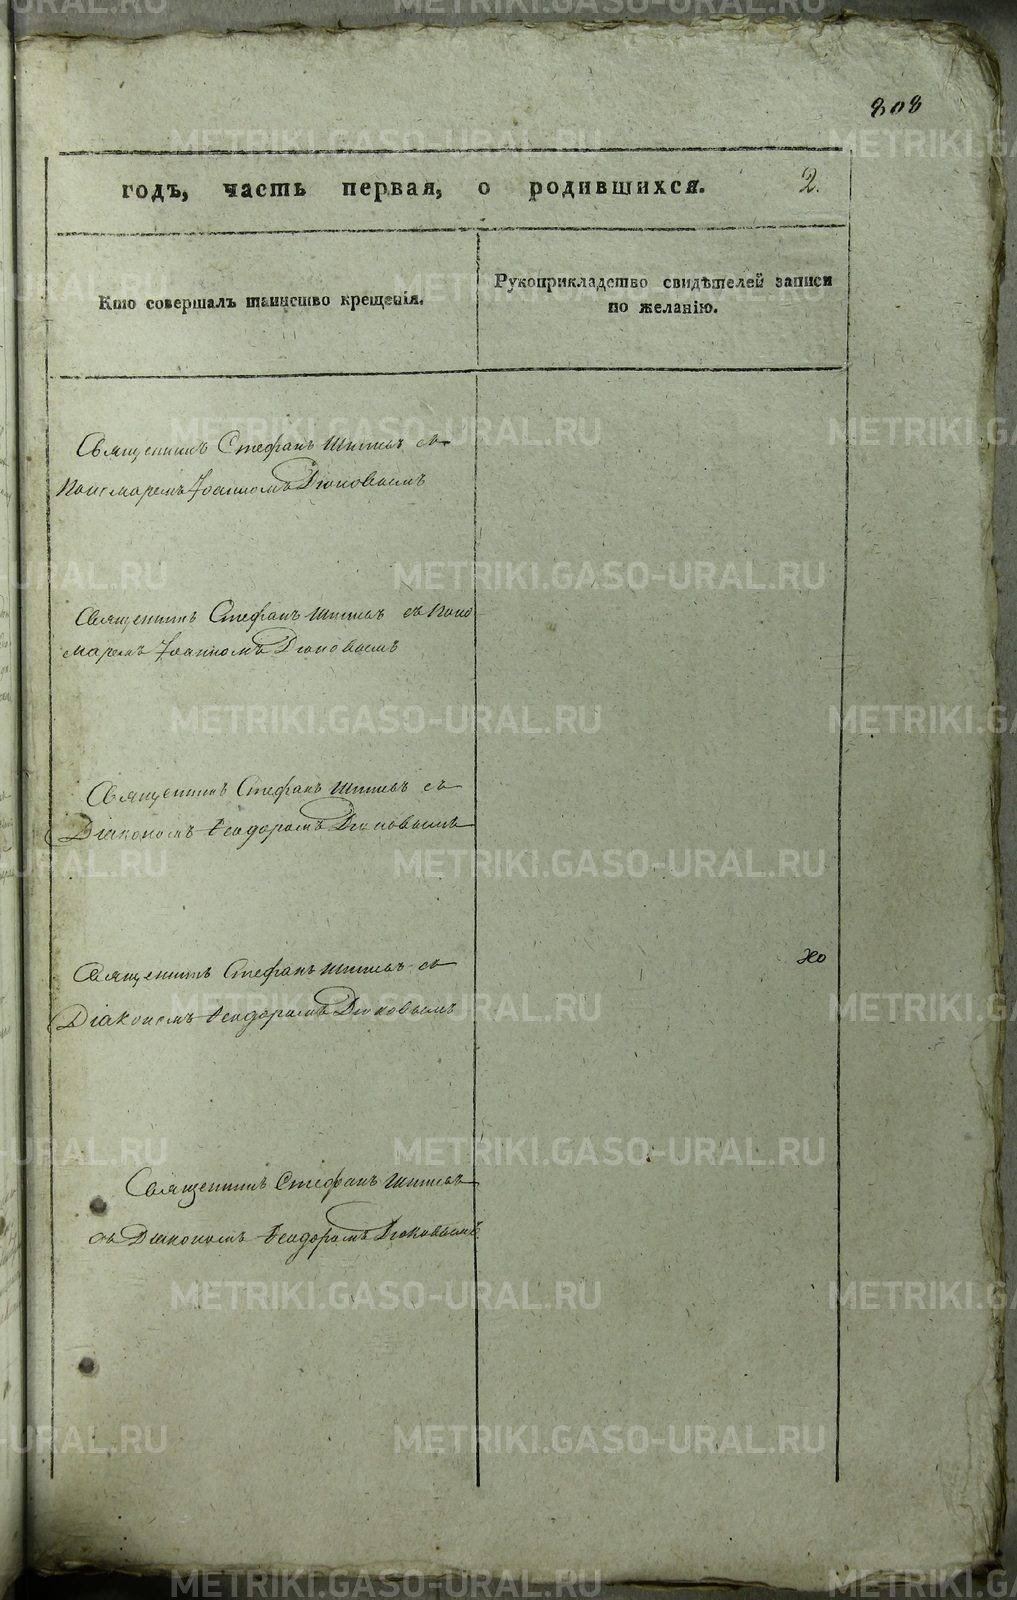 808
годъ, часть первая, о родившихся. 2.
Кто совершалъ таинство крещенія.
Рукоприкладство свидѣтелей записи
по желанію.
Священникъ Стефанъ съ
Пономаремъ Іоанномъ Дюковымъ
Священникъ Стефанъ съ Поно
маремъ Іоанномъ Дюковымъ
Священникъ Стефанъ съ
Діакономъ Ѳеодоромъ Дюковымъ
Священникъ Стефанъ съ
Діакономъ Ѳеодоромъ Дюковымъ
Священникъ Стефанъ
съ Діакономъ Ѳеодоромъ Дюковымъ
METRIKI.GASO-URAL.RU